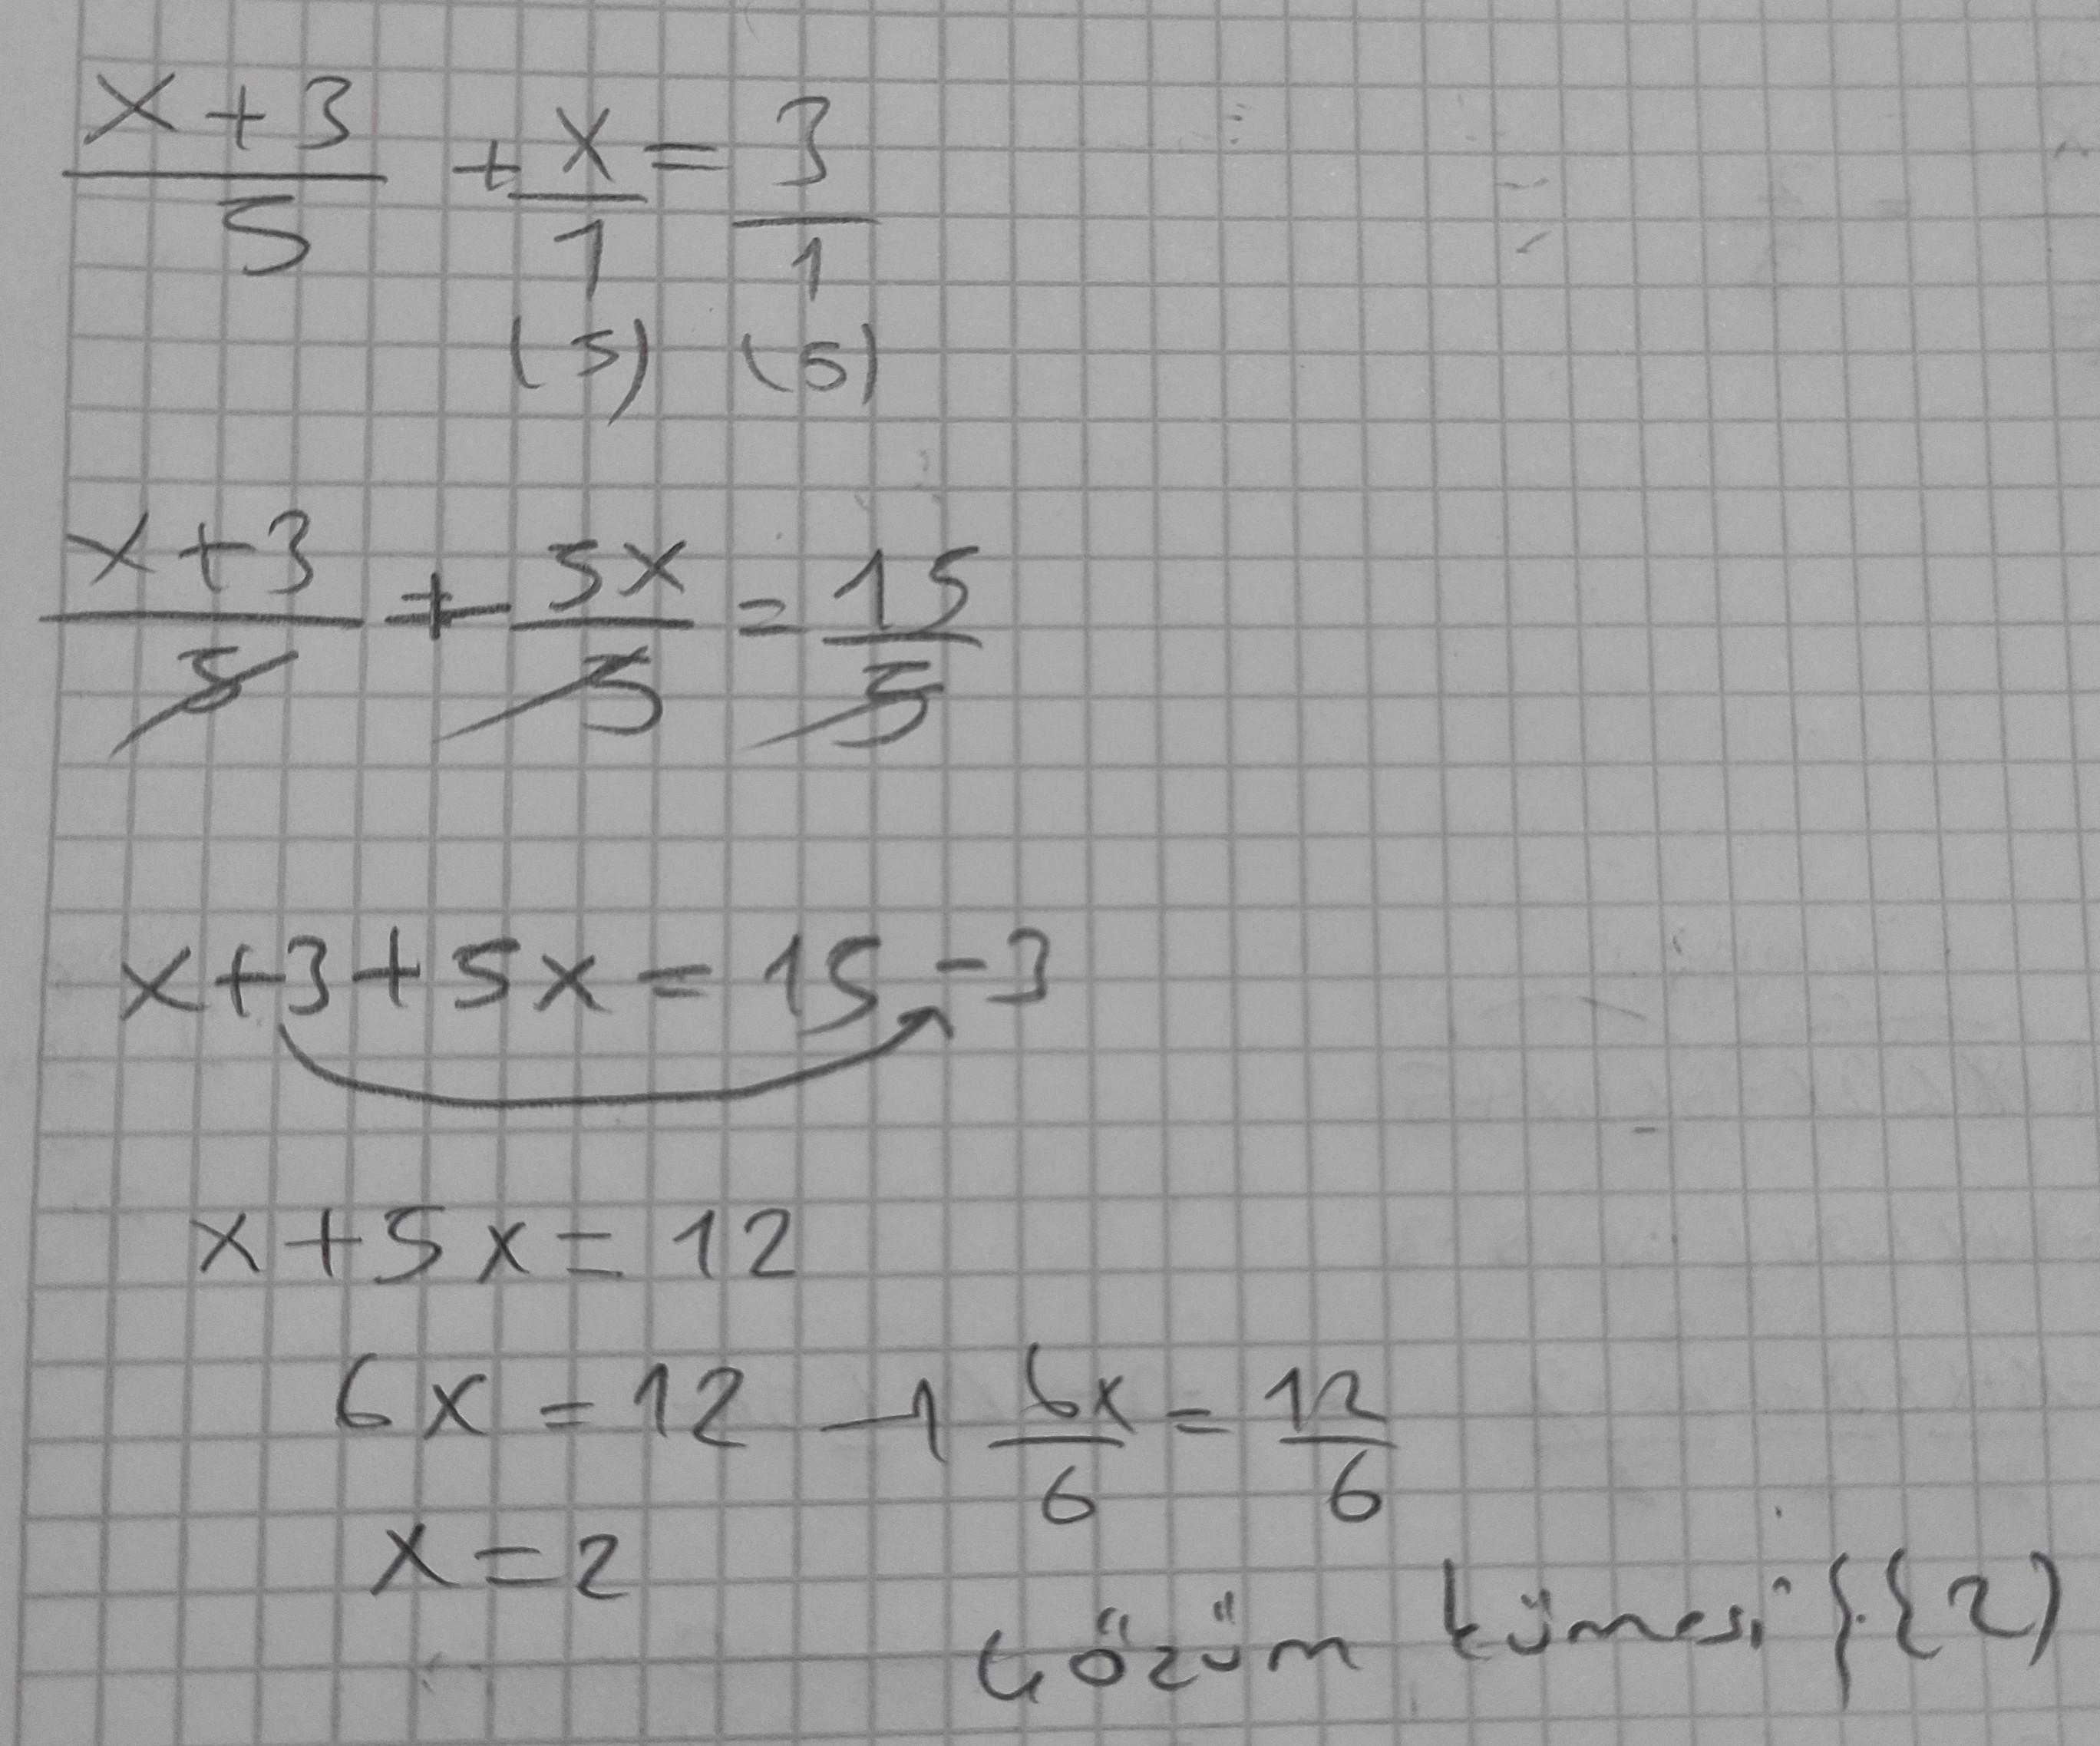 x+3/5 + x/1 = 3/1
(5) (5)
x+3/5 + 5x/5 = 15/5
x+3+5x=15-3
x+5x=12
6x=12 → 6x/6 = 12/6
x=2
çözüm kümesi {{2}